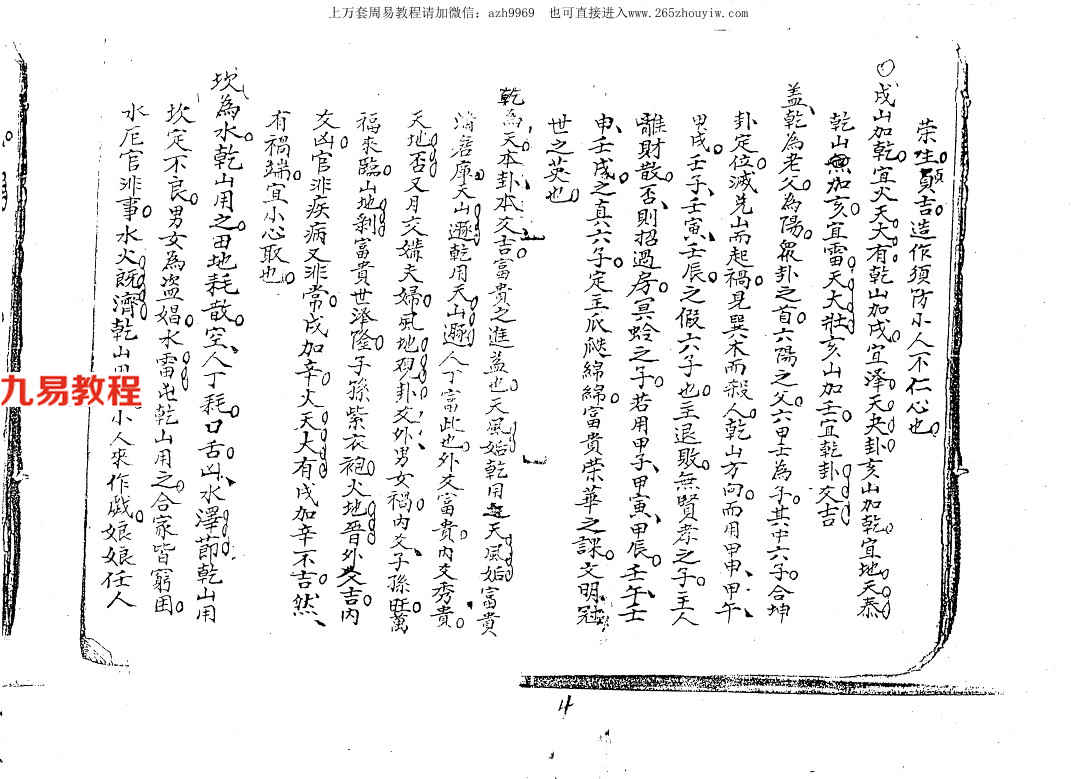 上万套周易教程请加微信：azh9969 也可直接进入www.265zhouyiw.com
荣吉造作須防小人不仁心也
〇戌山加乾宜火天大有乾山加戌宜泽天夬卦亥山加乾宜地天泰
乾山加亥宜雷天大壮亥山加壬宜乾卦爻吉
盖乾為老父為陽眾卦之首六陽之父六甲壬為子其中六子合坤
卦定位滅兑山而起禍見巽木而殺人乾山方向而用甲申甲午
甲戌壬子壬寅壬辰之假六子也主退敗無賢孝之子主人
離財散否則招過房冥蛉之子若用甲子甲寅甲辰壬午壬
申壬戌之真六子定主瓜瓞綿綿富貴荣華之課文明冠
世之英也
乾為天本卦本爻吉富貴之進益也天風姤乾用天風姤富貴
滿倉庫天山遯乾用天山遯人丁富此也外爻富貴内爻秀貴
天地否又月交媾夫婦風地观卦爻外男女禍内爻子孫旺萬
福來臨山地剥富貴世澤隆子孫紫衣袍火地晉外爻吉内
爻凶官非疾病又非常戌加辛火天大有戌加辛不吉然
有禍端宜小心取也
坎為水乾山用之田地耗散空人丁耗口舌凶水澤節乾山用
坎定不良男女為盗娼水雷屯乾山用之合家皆窮困
水厄官非事水火既濟乾山小人來作戯娘娘任人
九易教程
4